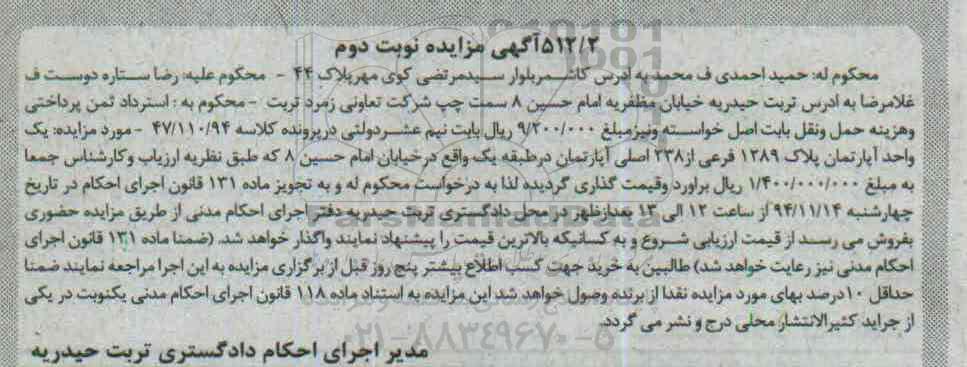 ۵۱۲/۲آگهی مزایده نوبت دوم
محکوم له: حمید احمدی ف محمد به آدرس کاشمربلوار سیدمرتضی کوی مهرپلاک ۴۴ - محکوم علیه: رضا ستاره دوست ف
غلامرضا به آدرس تربت حیدریه خیابان مظفریه امام حسین ۸ سمت چپ شرکت تعاونی زمرد تربت -محکوم به : استرداد ثمن پرداختی
وهزینه حمل ونقل بابت اصل خواسته ونیزمبلغ ۹/۲۰۰/۰۰۰ ریال بابت نیم عشردولتی درپرونده کلاسه ۴۷/۱۱۰/۹۴ -مورد مزایده: یک
واحد آپارتمان پلاک ۱۳۸۹ فرعی از۲۳۸ اصلی آپارتمان درطبقه یک واقع درخیابان امام حسین ۸ که طبق نظریه ارزیاب وکارشناس جمعا
به مبلغ ۱/۴۰۰/۰۰۰/۰۰۰ ریال براورد وقیمت گذاری گردیده لذا به درخواست محکوم له و به تجویز ماده ۱۳۱ قانون اجرای احکام در تاریخ
چهارشنبه ۹۴/۱۱/۱۴ از ساعت ۱۲ الی ۱۳ بعدازظهر در محل دادگستری تربت حیدریه دفتر اجرای احکام مدنی از طریق مزایده حضوری
بفروش می رسد از قیمت ارزیابی شروع و به کسانیکه بالاترین قیمت را پیشنهاد نمایند واگذار خواهد شد. (ضمنا ماده ۱۳۱ قانون اجرای
احکام مدنی نیز رعایت خواهد شد) طالبین به خرید جهت کسب اطلاع بیشتر پنج روز قبل از برگزاری مزایده به این اجرا مراجعه نمایند ضمنا
حداقل ۱۰درصد بهای مورد مزایده نقدا از برنده وصول خواهد شد این مزایده به استناد ماده ۱۱۸ قانون اجرای احکام مدنی یکنوبت در یکی
از جراید کثیرالانتشار محلی درج و نشر می گردد.
۰۲۱-۸۸۳۴۹۶۷۰-۵
مدیر اجرای احکام دادگستری تربت حیدریه